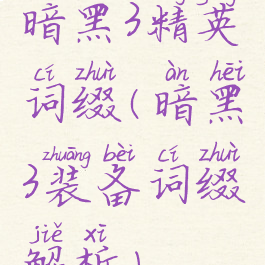 暗黑3精英
cí zhuì àn hēi
词缀(暗黑
zhuāng bèi cí zhuì
3装备词缀
jiě xī
解析)